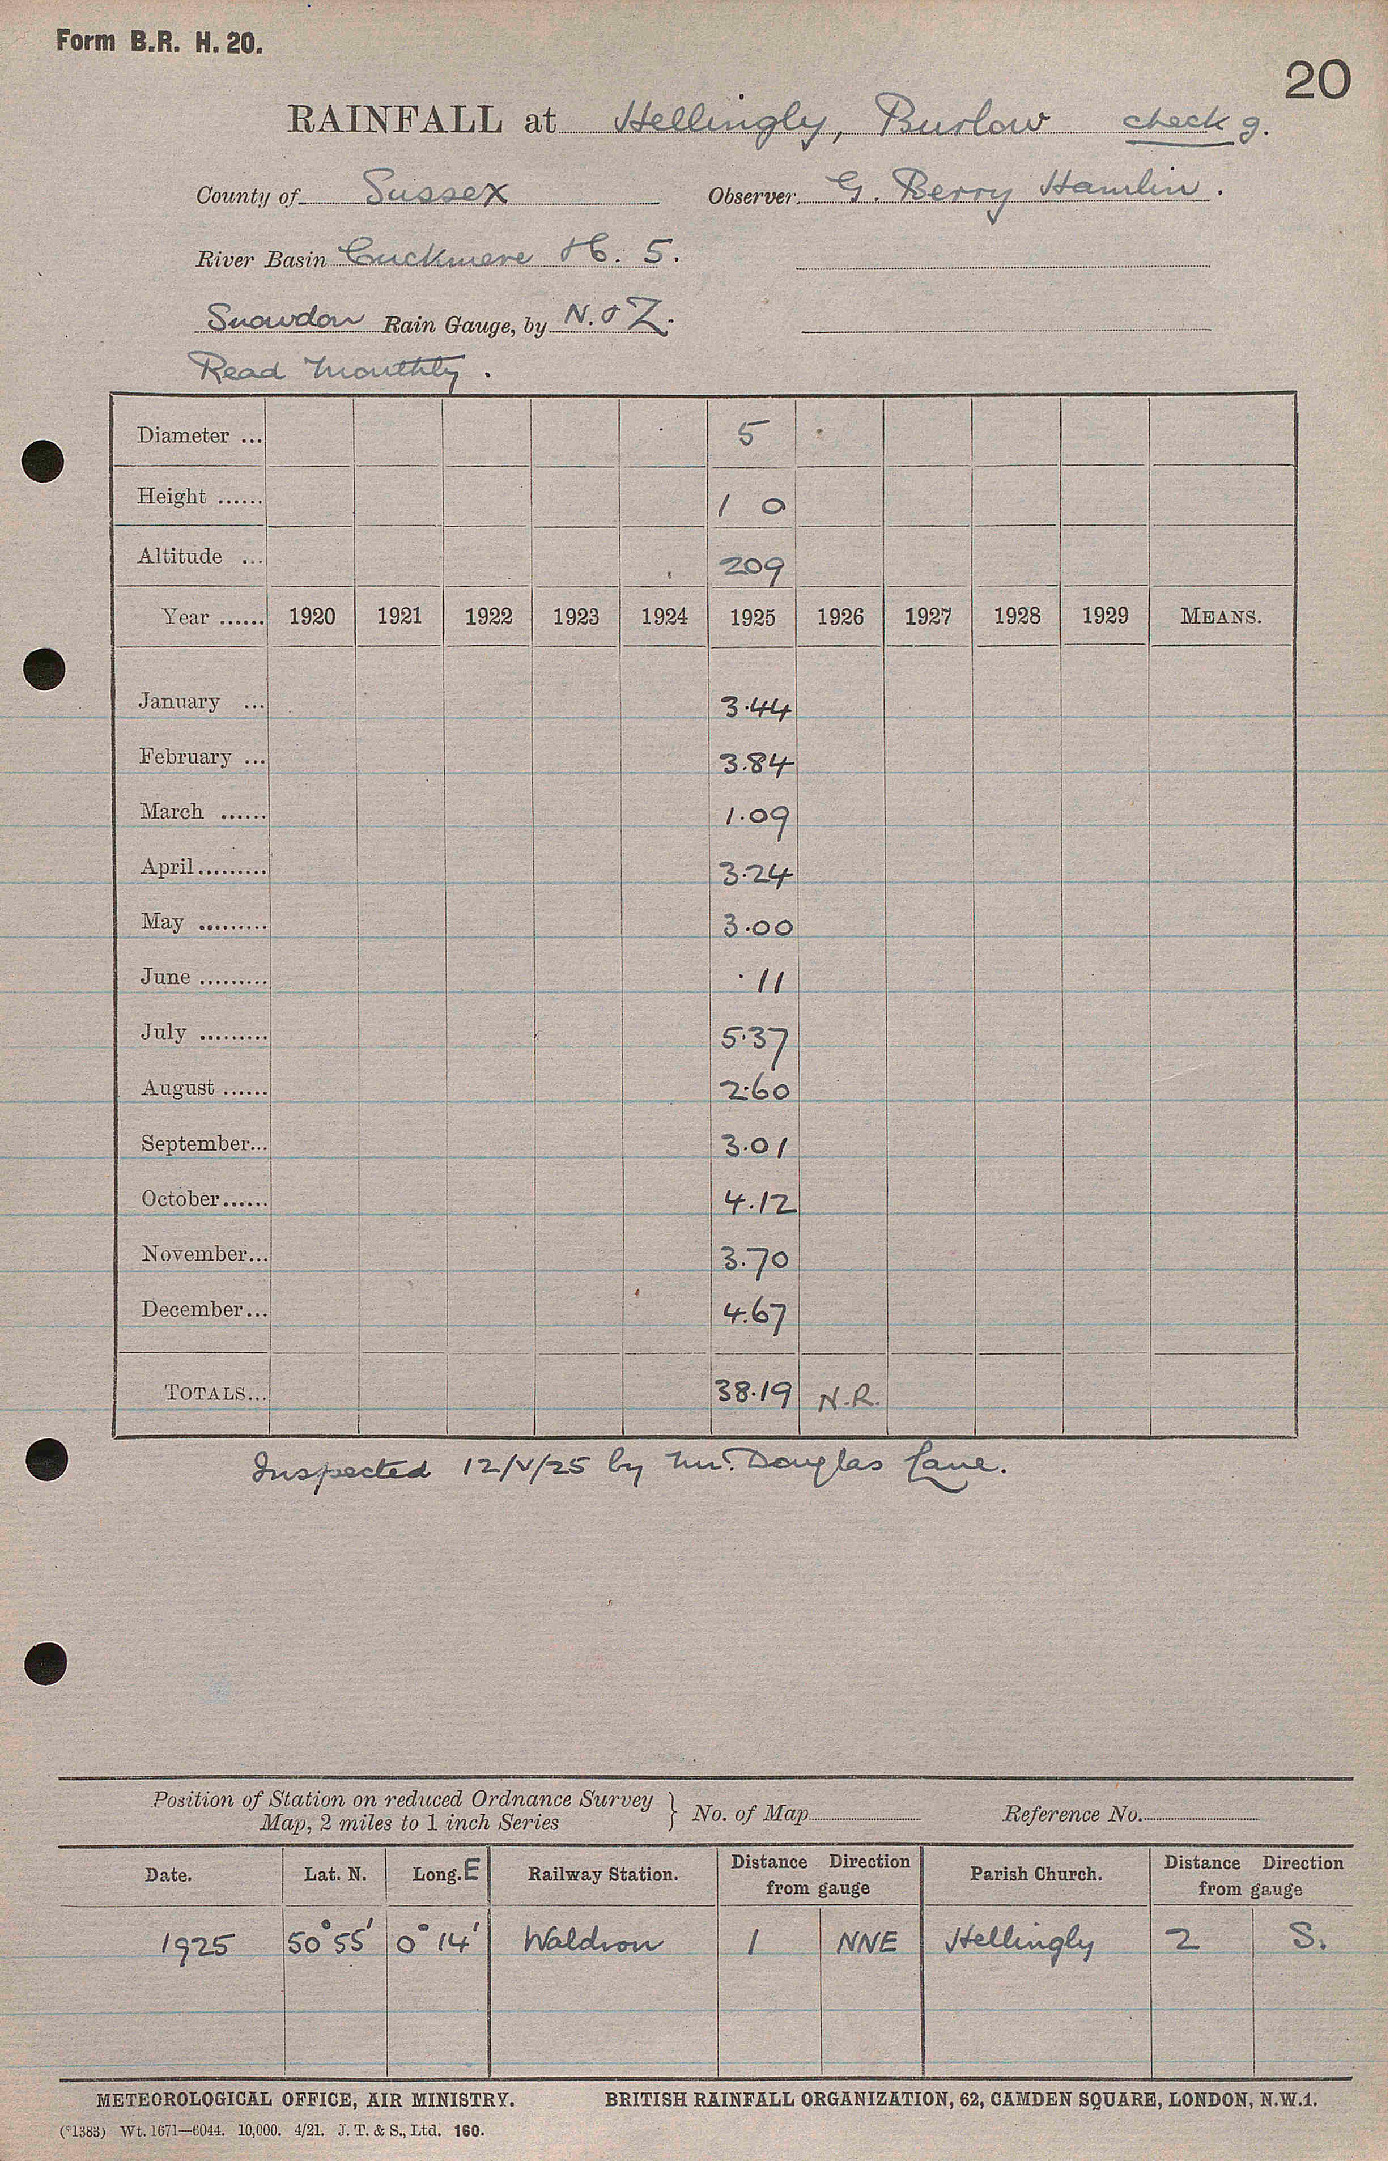 Form B.R. H. 20.
20
RAINFALL at Hellingly, Burlow check g.
County of Sussex Observer G. Berry Hamlin.
River Basin Cuckmere H. 5.
Snowdon Rain Gauge, by N. & Z.
Read Monthly.
Diameter ... 5
Height ...... 1 0
Altitude ... 209
Year ...... 1920 1921 1922 1923 1924 1925 1926 1927 1928 1929 MEANS.
January ... 3.44
February ... 3.84
March ...... 1.09
April ......... 3.24
May ......... 3.00
June ......... .11
July ......... 5.37
August ...... 2.60
September... 3.01
October...... 4.12
November... 3.70
December... 4.67
TOTALS... 38.19 N.R.
Inspected 12/V/25 by Mr. Douglas Lane.
Position of Station on reduced Ordnance Survey
Map, 2 miles to 1 inch Series } No. of Map Reference No.
Date. Lat. N. Long. E Railway Station. Distance Direction from gauge Parish Church. Distance Direction from gauge
1925 50° 55' 0° 14' Waldron 1 NNE Hellingly 2 S.
METEOROLOGICAL OFFICE, AIR MINISTRY. BRITISH RAINFALL ORGANIZATION, 62, CAMDEN SQUARE, LONDON, N.W.1.
(*1383) Wt. 1671—6044. 10,000. 4/21. J. T. & S., Ltd. 160.